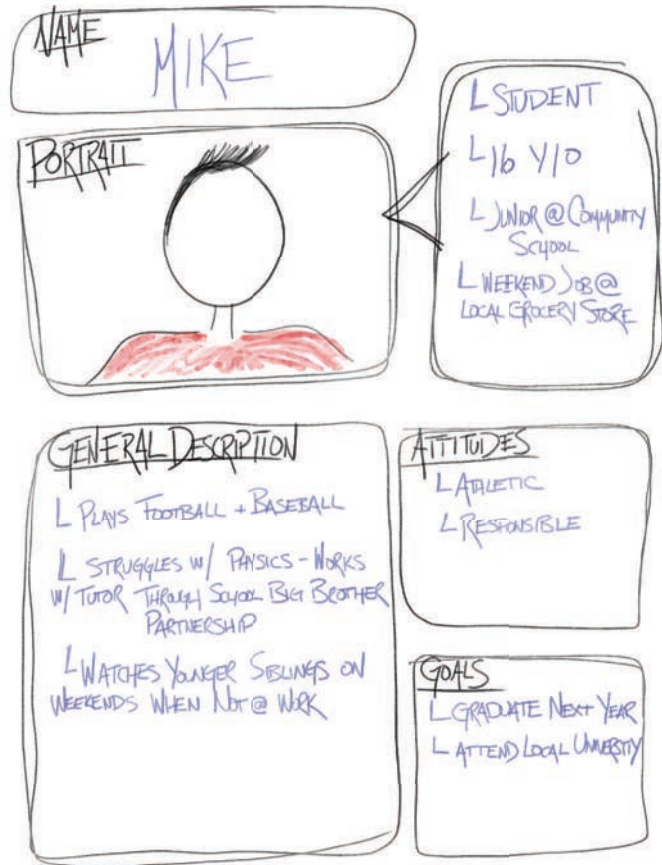 NAME
MIKE
PORTRAIT
L STUDENT
L 16 Y/O
L JUNIOR @ COMMUNITY
SCHOOL
L WEEKEND JOB @
LOCAL GROCERY STORE
GENERAL DESCRIPTION
L PLAYS FOOTBALL + BASEBALL
L STRUGGLES W/ PHYSICS - WORKS
W/ TUTOR THROUGH SCHOOL BIG BROTHER
PARTNERSHIP
L WATCHES YOUNGER SIBLINGS ON
WEEKENDS WHEN NOT @ WORK
ATTITUDES
L ATHLETIC
L RESPONSIBLE
GOALS
L GRADUATE NEXT YEAR
L ATTEND LOCAL UNIVERSTIY